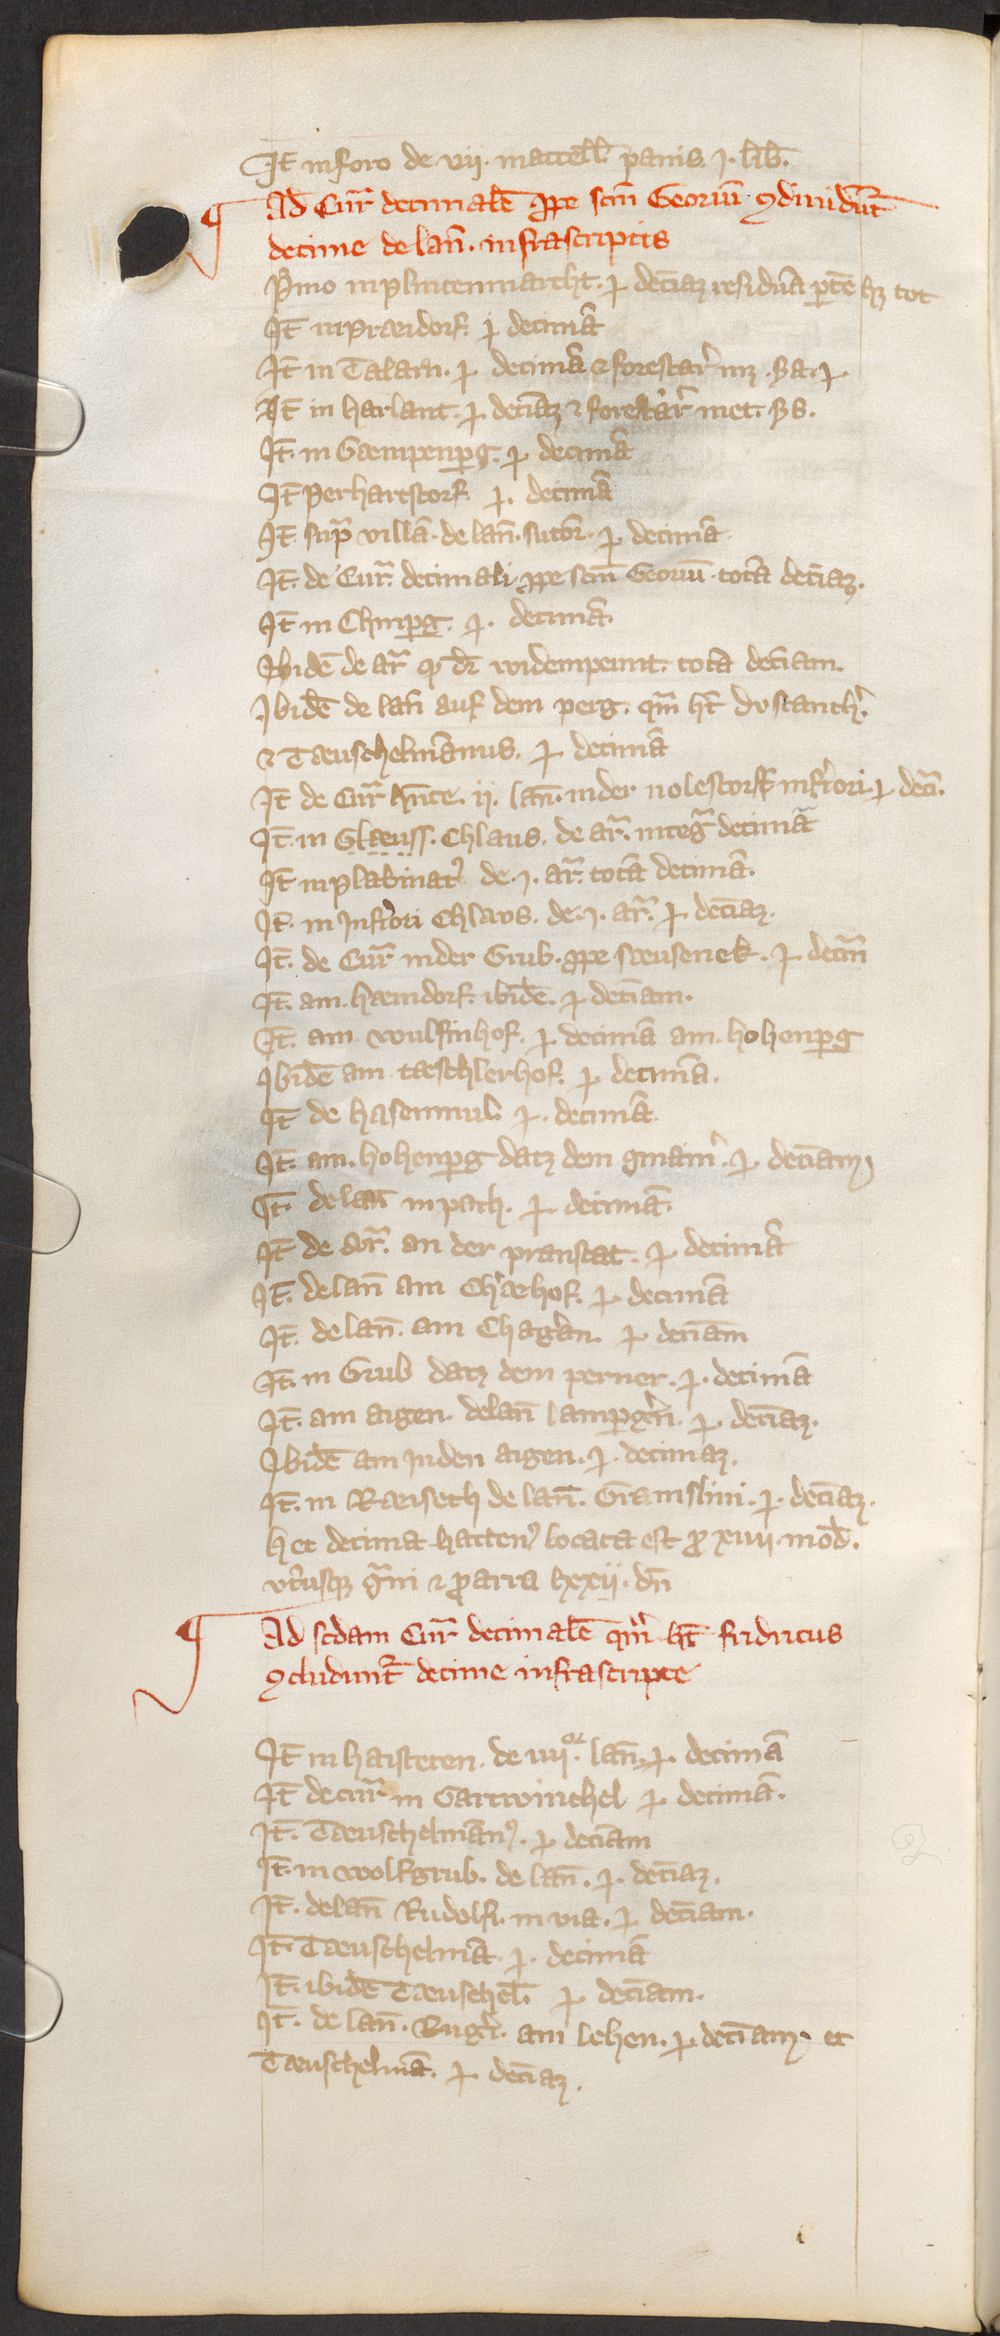 It̄ in foro de vij. maccell̄ panis .j. lib̄.
Ad Cur̄ decimalē ꝓpe scm̄ Georiū ꝯcludūt᷑
decime de lan̄. infrascriptis
P̃mo in plintenmarcht. p̱ dec̄iaꝫ residuā ptē hꝫ tot
It̄ in Prændorf. p̱ decimā
It̄ in Talarn. p̱ decimā ⁊ forestar̄
It̄ in harlant. p̱ dec̄iaꝫ ⁊ forestar̄ met.
It̄. in Gæmpenpg. p̱ decimā
It̄ Perhartstorf. p̱. decimā
It̄. supᵃ villā. de lan̄. sutor̄. p̱ decimā
It̄. de Cur̄. decimali ꝓpe scm̄ Georiū. totā dec̄iaꝫ.
It̄ in Chirpg. p̱. decimā.
Ibidē de ar̄ q̄ dr̄ widempeunt. totā deciam.
Ibidē de lan̄ auf dem perg. qᵃm ht̄
⁊ Tæuschelmannus. p̱ decimā
It̄ de Cur̄ hn̄te. ij. lan̄. in der nolestorf inf̄iori p̱ decī.
It̄. in Glæuss. Chlaus. de ar̄. integᵃ decimā
It̄ in plabinat᷑ de .j. ar̄. totā decimā.
It̄. in Inf̄iori Chlaus. de .j. ar̄. p̱ dec̄iaꝫ.
It̄. de Cur̄ in der Grub. ꝓpe sæusenek. p̱ decīm
It̄. am. hæindorf. ibidē. p̱ dec̄iam.
It̄. am wulfinhof. p̱ decimā am. hohenpg
Ibidē am tæschlerhof. p̱ decimā.
It̄ de hasenmul. p̱. decimā
It̄. am. hohenpg datz dem gmain̄. p̱ dec̄iam
It̄. de lan̄ in pach. p̱ decimā.
It̄ de ar̄. an der pranstat. p̱ decimā
It̄. de lan̄ am Chræhof. p̱ decimā
It̄. de lan̄. am Chagran. p̱ dec̄iam
It̄. in Grub datz dem perner. p̱. decimā
It̄. am aigen. de lan̄ lampgn̄. p̱ dec̄iaꝫ.
Ibidē am Inden aigen. p̱ decimaꝫ.
It̄. in Ræiseth de lan̄. Gramslini. p̱. dec̄iaꝫ.
hec decima hatten᷑ locata est ꝓ xviij mod̄.
vt̄iusqꝫ gᵃni ⁊ ꝓ arra lxxij. dn̄
Ad scdam Cur̄ decimalē qᵃm ht̄ fridricus
ꝯcludunt᷑ decime infrascripte
It̄ in haisteten. de iiijᵒʳ. lan̄. p̱. decimā
It̄ de cur̄ in Gartwinchel p̱ decimā.
It̄. Tæuschelmanꝰ. p̱ deciam
It̄. in wolfgrub. de lan̄. p̱. dec̄iaꝫ.
It̄. de lan̄ Rudolfi. in via. p̱ dec̄iam.
It̄. Tæuschelmā. p̱. decimā
It̄. ibidē Tæuschel̄. p̱ dec̄iam.
It̄. de lan̄. Rugr̄i. am lehen. p̱ dec̄iam et
Tæuschelmā. p̱. dec̄iaꝫ.